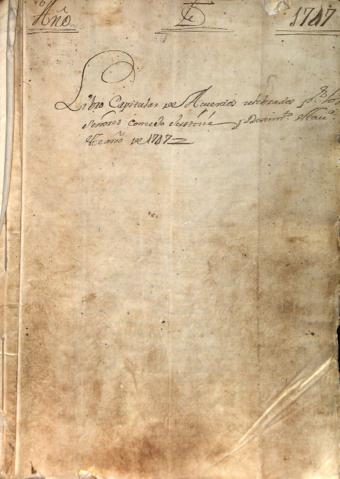 Año 1747
Libro Capitular de Acuerdos celebrados p.r los
Señores Concejo Justicia y
este año de 1747